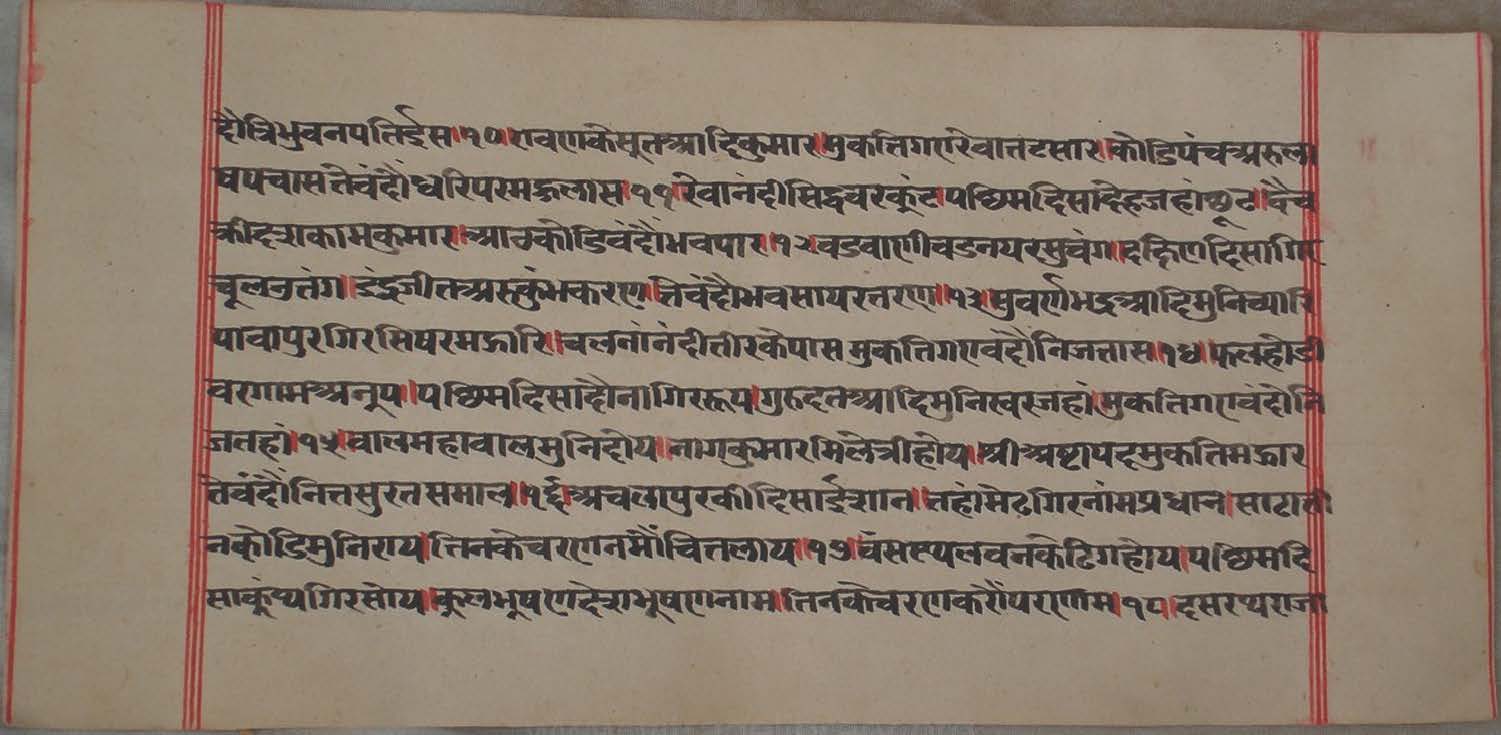 दौंत्रिभुवनपतिईस।१०।रावणकेसुतआदिकुमार।मुकतिगएरेवातटसार।कोडिपंचअरुला
षपचासतेवंदौंधरिपरमहुलास।११।रेवानंदीसिद्धवरकूंट।पछिमदिसादेहजहांछूट।द्वैच
क्रीदशकामकुमार।आठकोडिवंदौंभवपार।१२।वडवाणीवडनयरसुचंग।दक्षिणदिसागिर
चूलउतंग।इंद्रजीतअरुकुंभकरण।तेवंदौंभवसायरतरण।१३।सुवर्णभद्रआदिमुनिच्यारि
पावापुरगिरसिषरमझारि।चलनांनंदीतीरकेपास।मुकतिगएवंदौंनिजतास।१४।फलहोडी
वरगामअनूप।पछिमदिसादौनागिररूप।गुरुदतआदिमुनिस्वरजहां।मुकतिगएवंदोनि
जतहां।१५।वालमहावालमुनिदोय।नागकुमारमिलेत्रीहोय।श्रीअष्टापदमुकतिमझार
तेवंदौंनितसुरतसमाल।१६।अचलापुरकीदिसाईशान।तहांमेढगिरनांमप्रधान।साढाती
नकोडिमुनिराय।तिनकेचरणनमौंचितलाय।१७।वंसस्थलवनकेढिगहोय।पछिमदि
साकूंथ्यगिरसोय।कुलभूषणदेशभूषणनाम।तिनकेचरणकरौंपरणाम।१८।दसरथराजा